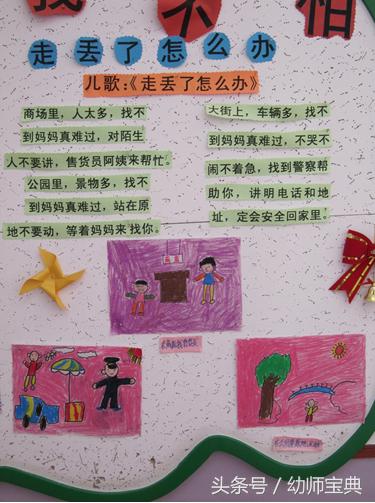 我不怕
走丢了怎么办
儿歌：《走丢了怎么办》
商场里，人太多，找不
到妈妈真难过，对陌生
人不要讲，售货员阿姨来帮忙。
公园里，景物多，找不
到妈妈真难过，站在原
地不要动，等着妈妈来找你。
大街上，车辆多，找不
到妈妈真难过，不哭不
闹不着急，找到警察帮
助你，讲明电话和地
址，定会安全回家里。
头条号／幼师宝典